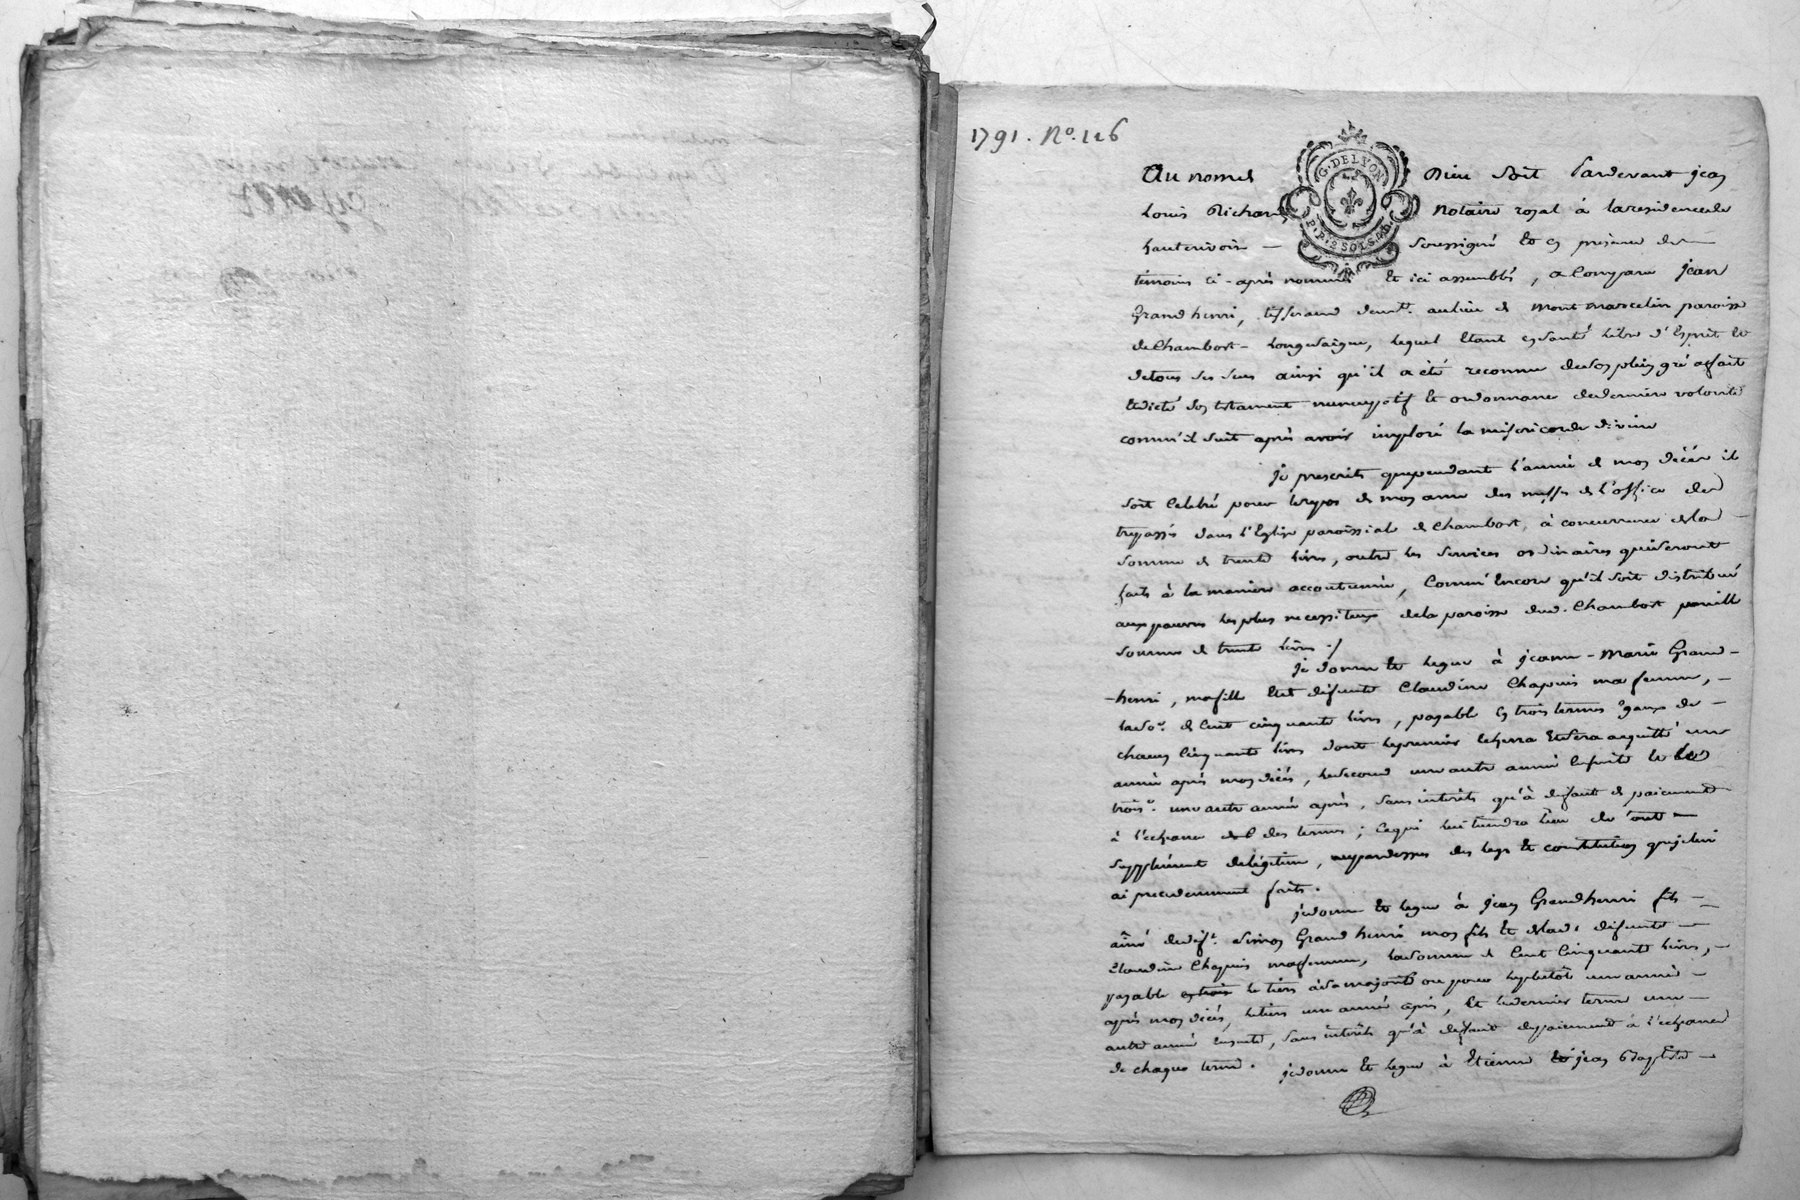 1791. No. 126
G. DE LYON
P. P. 2 SOLS. 4 D.
Au nom de Dieu soit Pardevant jean
Louis Richard Notaire royal à la residence de
hauterivoire — soussigné Et en presence des —
témoins ci-après nommés Et ici assemblés, a Comparu jean
Grandhenri, tisserand demt. au lieu de Mont marcelin paroisse
de Chambost-Longesaigne, lequel Etant en santé libre d'Esprit Et
de tous ses sens ainsi qu'il a été reconnu de son plein gré a fait
Et dicté son testament nuncupatif Et ordonnance de derniere volonté
comm'il suit après avoir imploré la misericorde divine
je prescrits que pendant l'année de mon décès il
soit Celebré pour le repos de mon ame des messes de l'office des
trepassés dans l'Eglise paroissiale de Chambost, à concurrence de la
somme de trente livres, outre les services ordinaires qui seront
faits à la maniere accoutumée, Comm'Encore qu'il soit distribué
aux pauvres les plus necessiteux de la paroisse dud. Chambost pareille
somme de trente livres ./
je donne Et legue à jeanne-Marie Grand-
-henri, ma fille Et de défunte Claudine Chapuis ma femme, —
la so.e de Cent cinquante livres, payable En trois termes égaux de —
chacun Cinquante livres dont le premier écherra Et sera acquitté une
année après mon décès, le second une autre année Ensuite Et le
trois.e une autre année après, sans intérêts qu'à défaut de paiement
à l'echeance des termes ; Ce qui lui tiendra lieu de tout —
supplément de légitime, au par dessus des legs Et constitution que je lui
ai precedemment faits.
je donne Et legue à jean Grandhenri fils —
aîné de déf.t Simon Grandhenri mon fils Et de lad. défunte —
Claudine Chapuis ma femme, la somme de Cent Cinquante livres, —
payable en trois le tiers à sa majorité ou pour le plutôt une année —
après mon décès, le tiers une année après, Et le dernier terme une —
autre année Ensuite, sans intérêts qu'à défaut de paiement à l'echeance
de chaque terme. je donne Et legue à Etienne Et jean Baptiste —